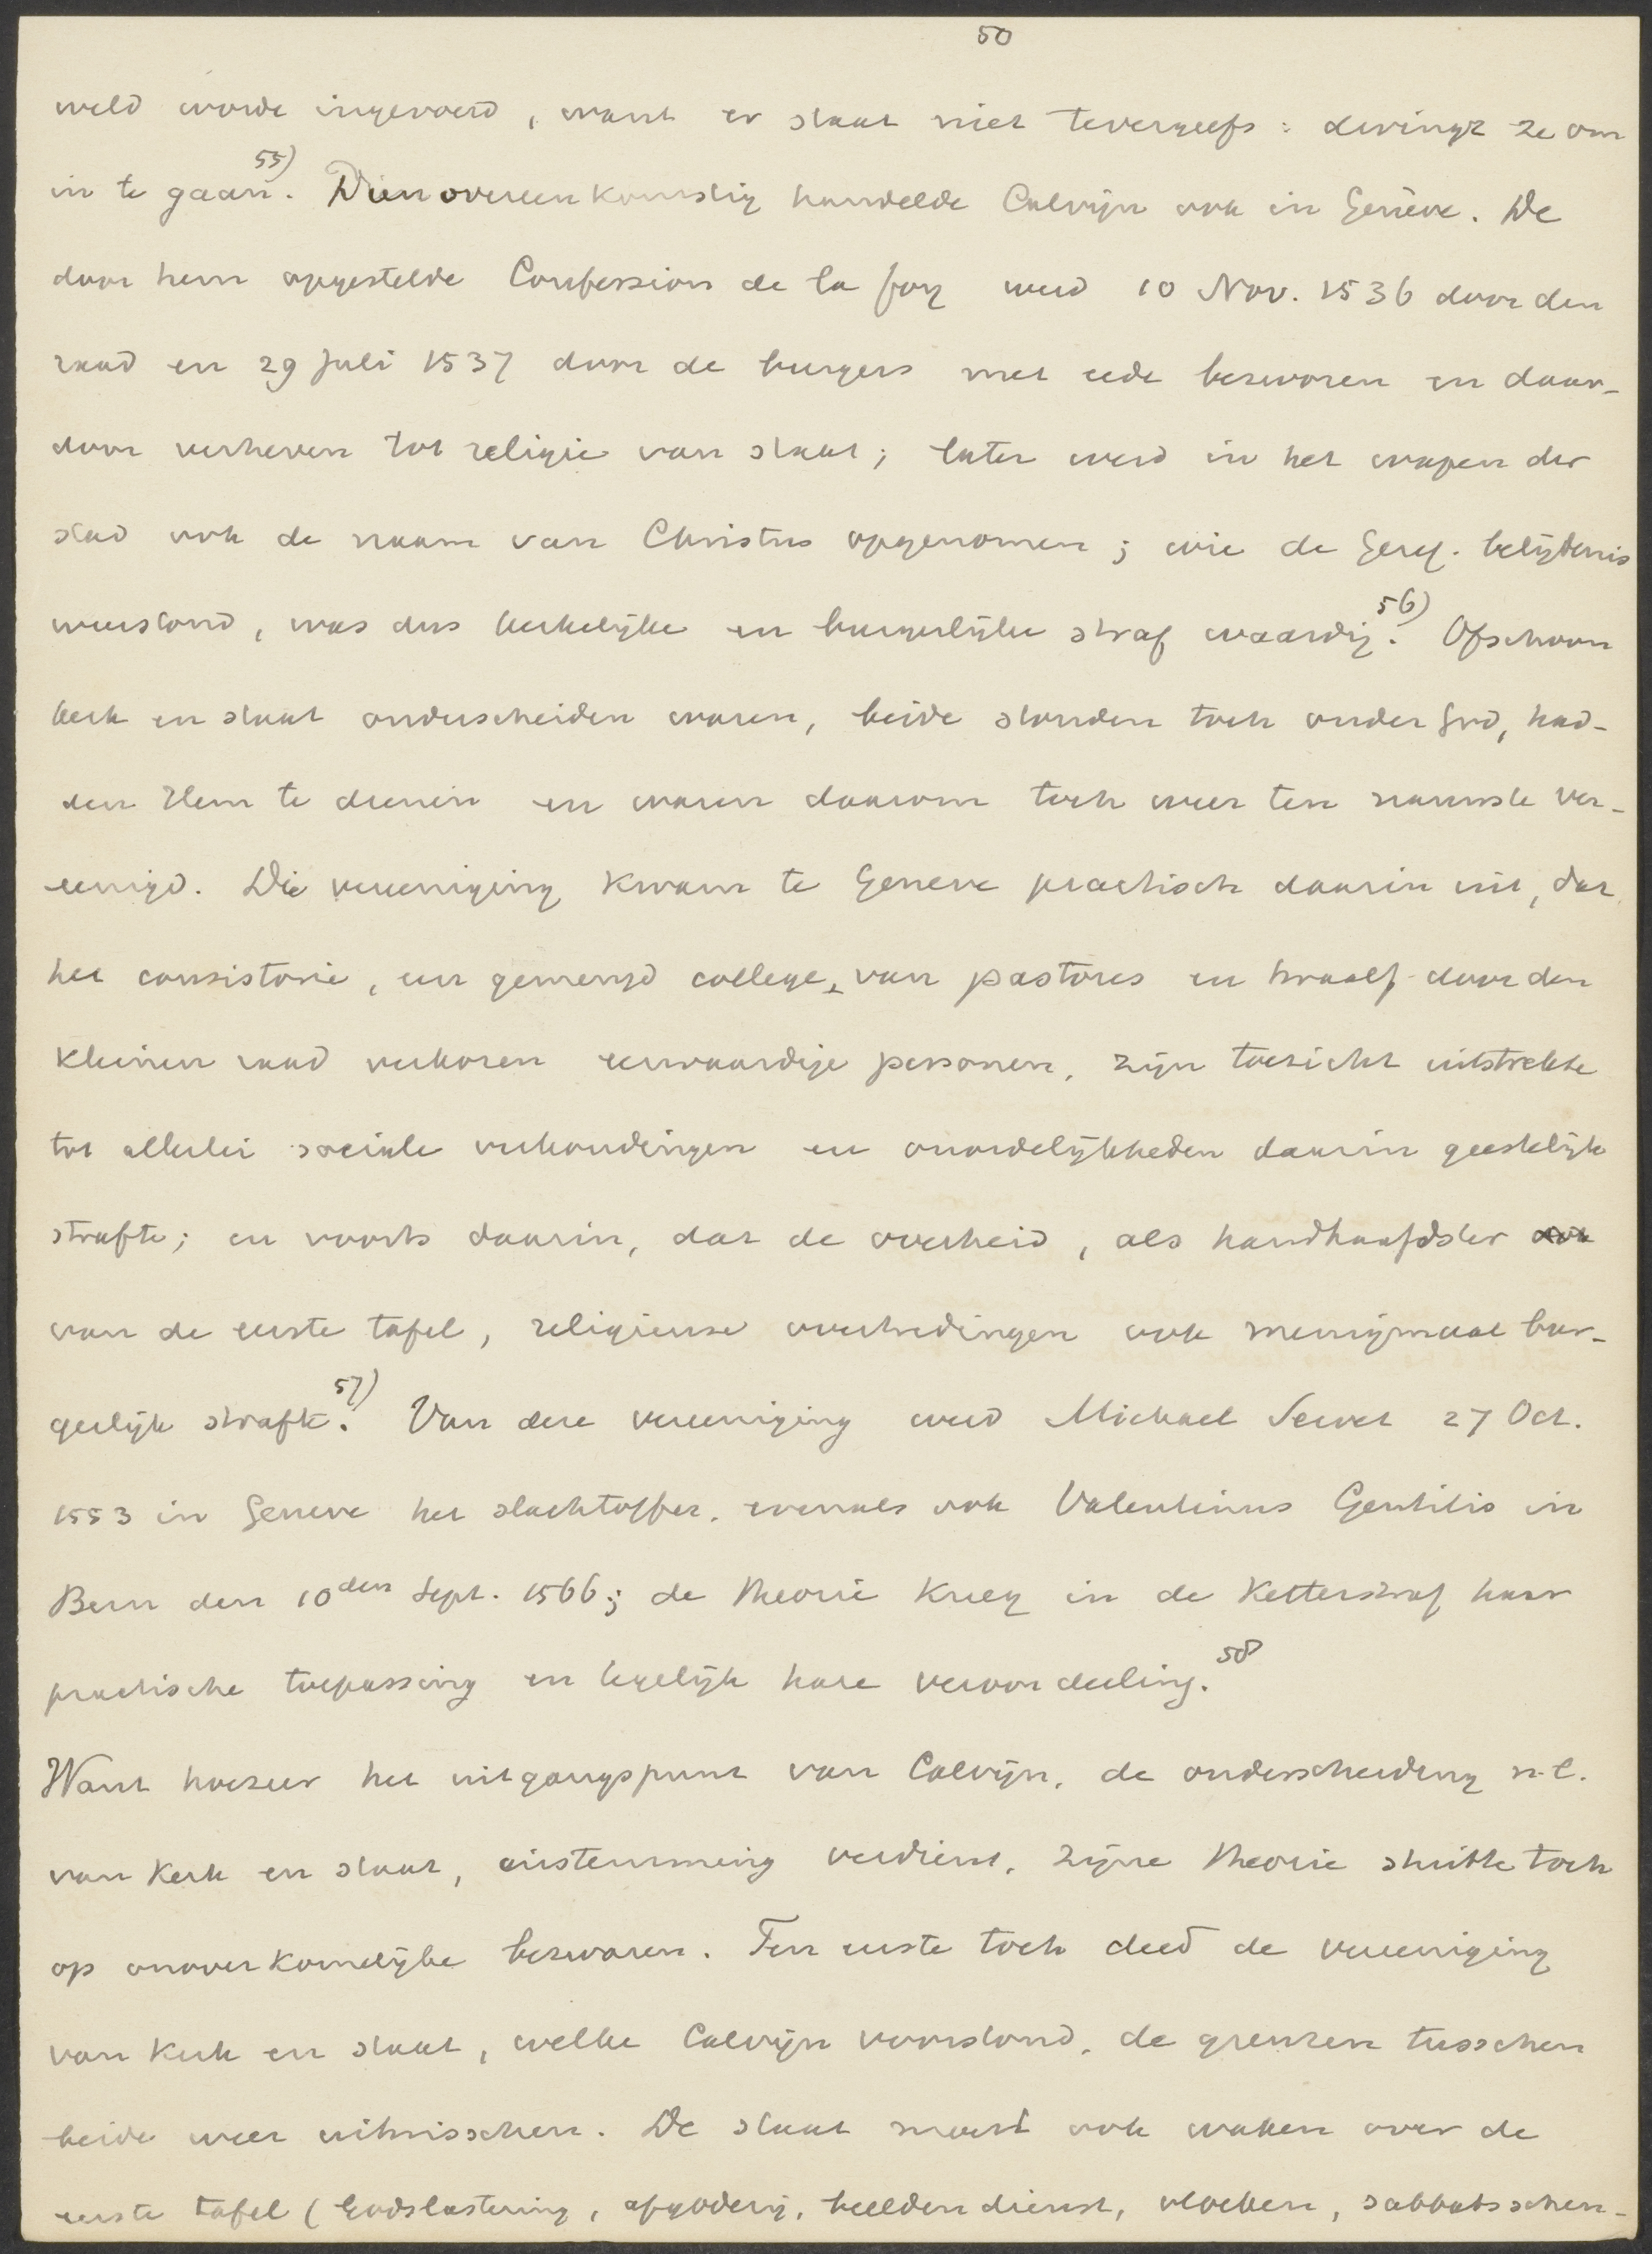 50
weld worde ingevoerd, want er staat niet tevergeefs: dwingt ze om
in te gaan. 55) Dienovereenkomstig handelde Calvijn ook in Genève. De
door hem opgestelde Confession de la foy werd 10 Nov. 1536 door den
raad en 29 Juli 1537 door de burgers met eede bezworen en daar-
door verheven tot religie van staat; later werd in het wapen der
stad ook de naam van Christus opgenomen; wie de Geref. belijdenis
weerstond, was dus kerkelijke en burgerlijke straf waardig. 56) Ofschoon
kerk en staat onderscheiden waren, beide stonden toch onder God, had-
den Hem te dienen en waren daarom toch weer ten nauwste ver-
eenigd. Die vereeniging kwam te Geneve practisch daarin uit, dat
het consistorie, een gemengd college, van pastores en twaalf door den
kleinen raad verkoren eerwaardige personen, zijn toezicht uitstrekte
tot allerlei sociale verhoudingen en onordelijkheden daarin geestelijk
strafte; en voorts daarin, dat de overheid, als handhaafdster ook
van de eerste tafel, religieuse overtredingen ook menigmaal bur-
gerlijk strafte. 57) Van deze vereeniging werd Michael Servet 27 Oct.
1553 in Geneve het slachtoffer, evenals ook Valentinus Gentilis in
Bern den 10den Sept. 1566; de theorie kreeg in de ketterstraf haar
practische toepassing en tegelijk hare veroordeeling. 58
Want hoezeer het uitgangspunt van Calvijn, de onderscheiding n.l.
van Kerk en staat, instemming verdient, zijne theorie stuitte toch
op onoverkomelijke bezwaren. Ten eerste toch deed de vereeniging
van Kerk en staat, welke Calvijn voorstond, de grenzen tusschen
beide weer uitwisschen. De staat moest ook waken over de
eerste tafel (Godslastering, afgoderij, beeldendienst, vloeken, sabbatsschen-